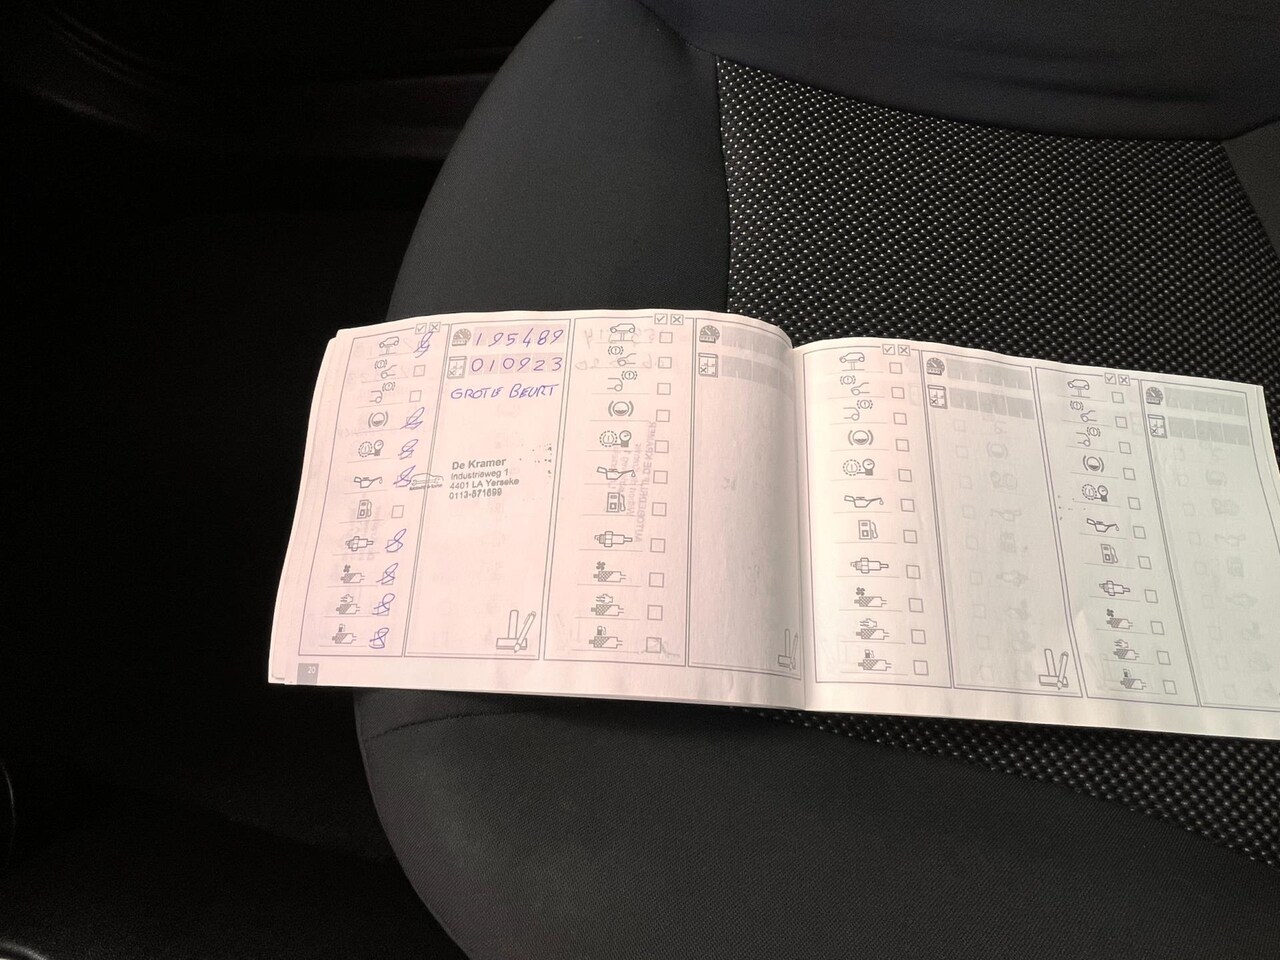 195489
010923
GROTE BEURT
De Kramer
Industrieweg 1
4401 LA Yerseke
0113-571899
20